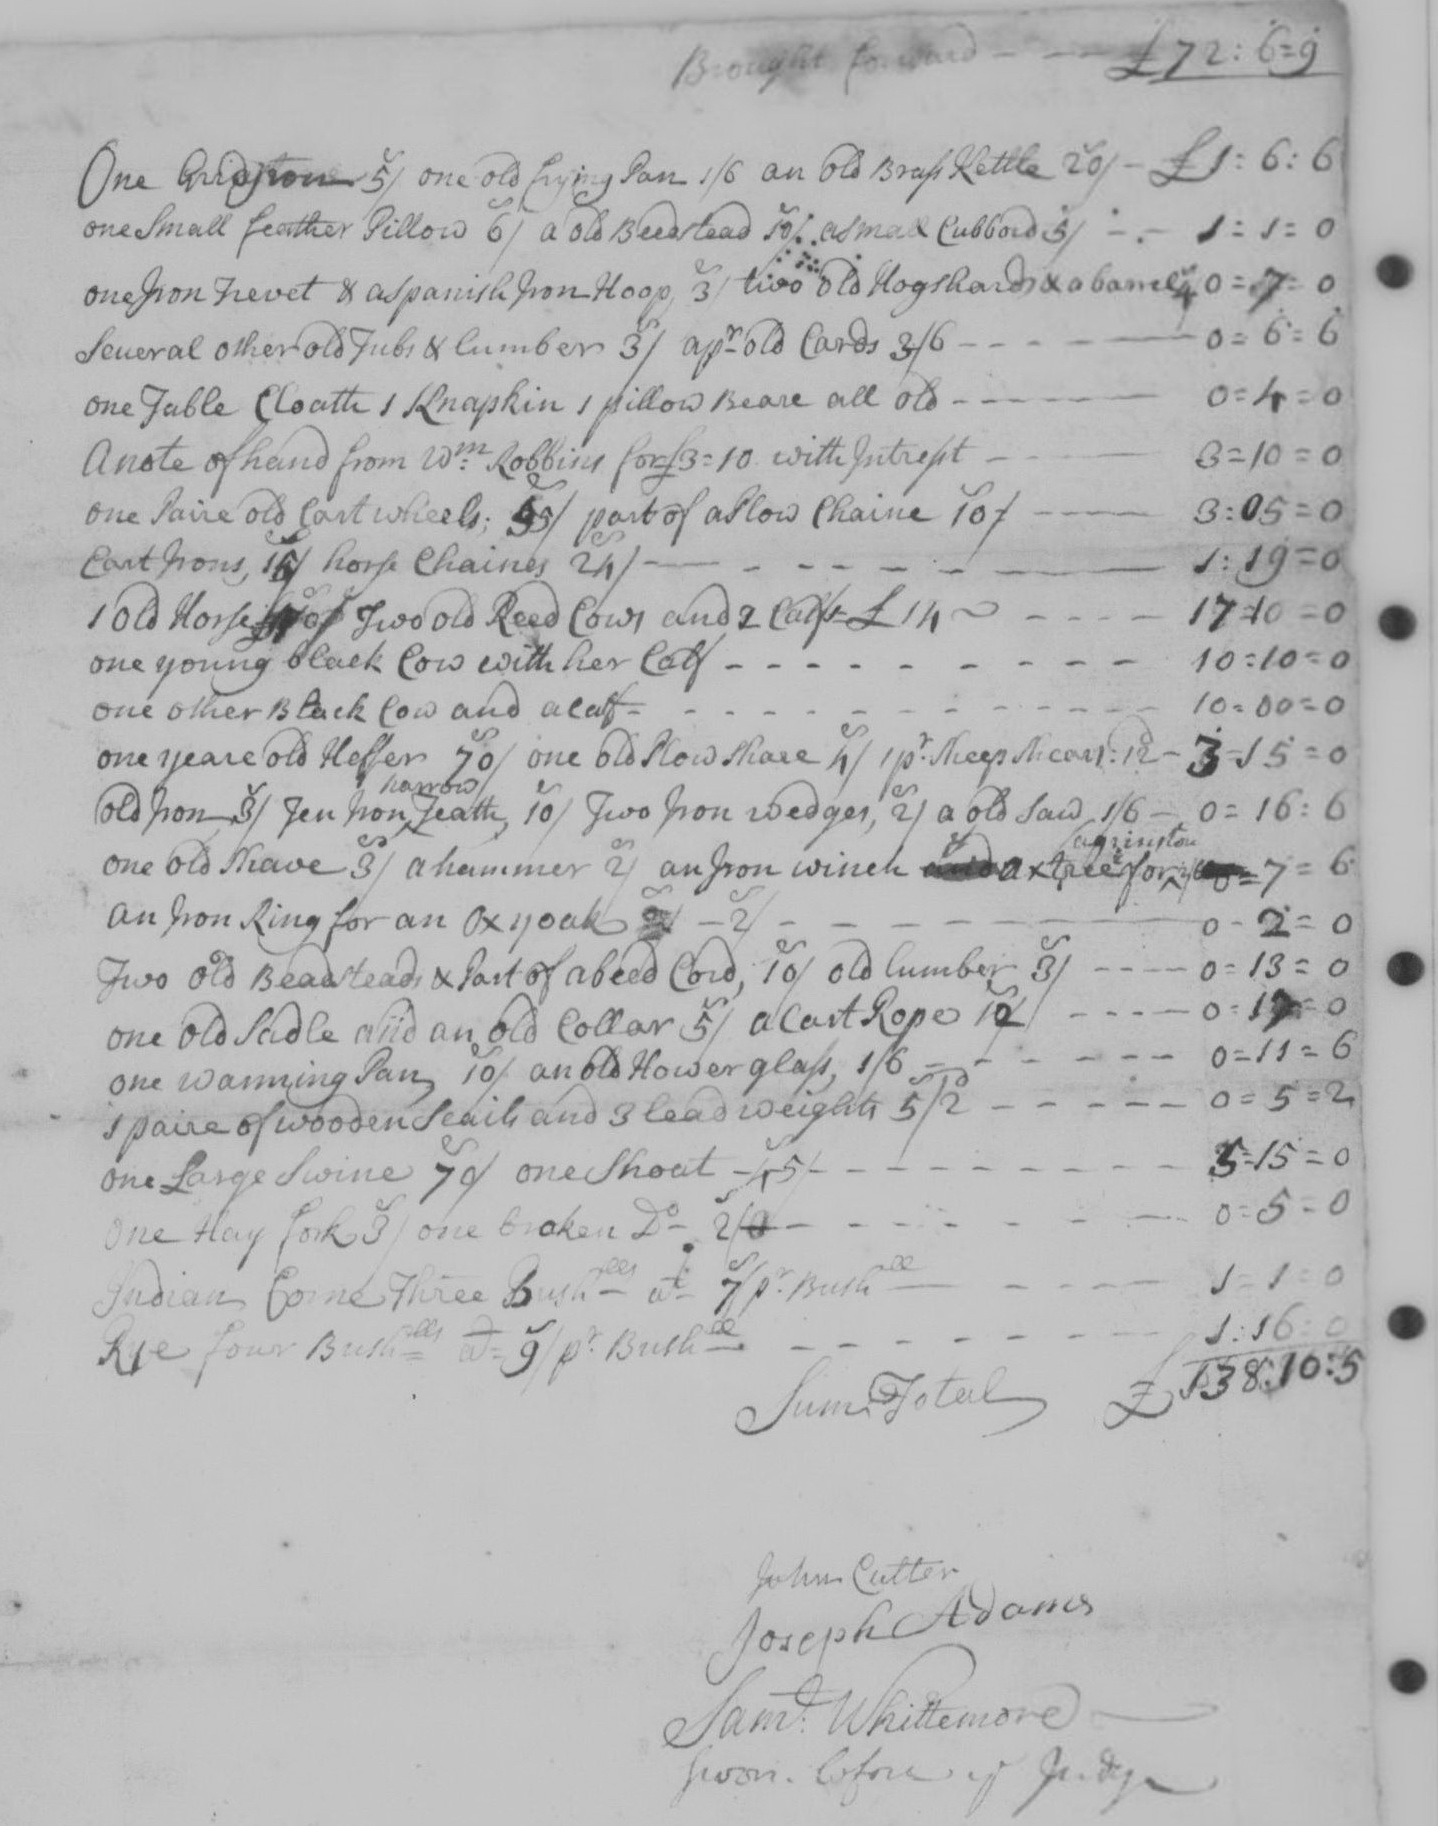 Brought forward - - - £72:6=9
One Gridjron 5/ one old frying Pan 1/6 an old Brass Kettle 20/ - £1:6:6
one Small feather Pillow 6/ a old Beedstead 10/ a smal Cubbord 5/ - - 1=1=0
one Jron Trevet & a Spanish Jron Hoop, 3/ two old Hogshards & a barrel 4/ 0=7=0
Several other old Tubs & lumber 3/ a pr old Cards 3/6 - - - - 0=6=6
one Table Cloath 1 Knapkin 1 pillow Beare all old - - - - 0=4=0
A note of hand from Wm Robbins for £3=10 with Jntrest - - 3=10=0
one Paire old Cart wheels, 55/ part of a Plow Chaine 10/ - - - 3:05=0
Cart Jrons, 15/ horse Chaines 24/ - - - - - - 1:19=0
1 old Horse 70/ Two old Reed Cows and 2 Calfs £14 - - - - 17=10=0
one young black Cow with her Calf - - - - - - - - - 10=10=0
one other Black Cow and a calf = - - - - - - - - - - 10=00=0
one yeare old Heffer 70/ one old Plow Share 4/ 1 pr Sheep Shears: 12d - 3=15=0
harrow
old Jron, 3/ Ten Jron ‸ Teath, 10/ Two Jron wedges, 2/ a old Saw 1/6 - 0=16:6
a grinston
one old Shave 3/ a hammer 2/ an Jron winch axtree for ‸ 0=7=6
an Jron Ring for an Ox yoak - 2/ - - - - - 0-2=0
Two old Beadsteads & Part of a beed Cord, 10/ old lumber 3/ - - - - 0=13=0
one old Sadle and an old Collar 5/ a Cart Rope 12/ - - - - 0=17=0
one warming Pan, 10/ an old Hower glass, 1/6 - - - - - 0=11=6
1 paire of wooden Scails and 3 lead weights 5/2d - - - - - 0=5=2
one Large Swine 70/ one Shoat - 45/ - - - - - - - - 5=15=0
One Hay fork 3/ one broken Do - 2/ - - - - - - - 0=5=0
Jndian Corne Three Bushells at 7/ pr Bushell - - - - 1=1=0
Rye four Bushells at 9/ pr Bushell - - - - - - - 1:16:0
Sum Total £138:10:5
John Cutter
Joseph Adams
Saml. Whittemore
Sworn before ye Judge